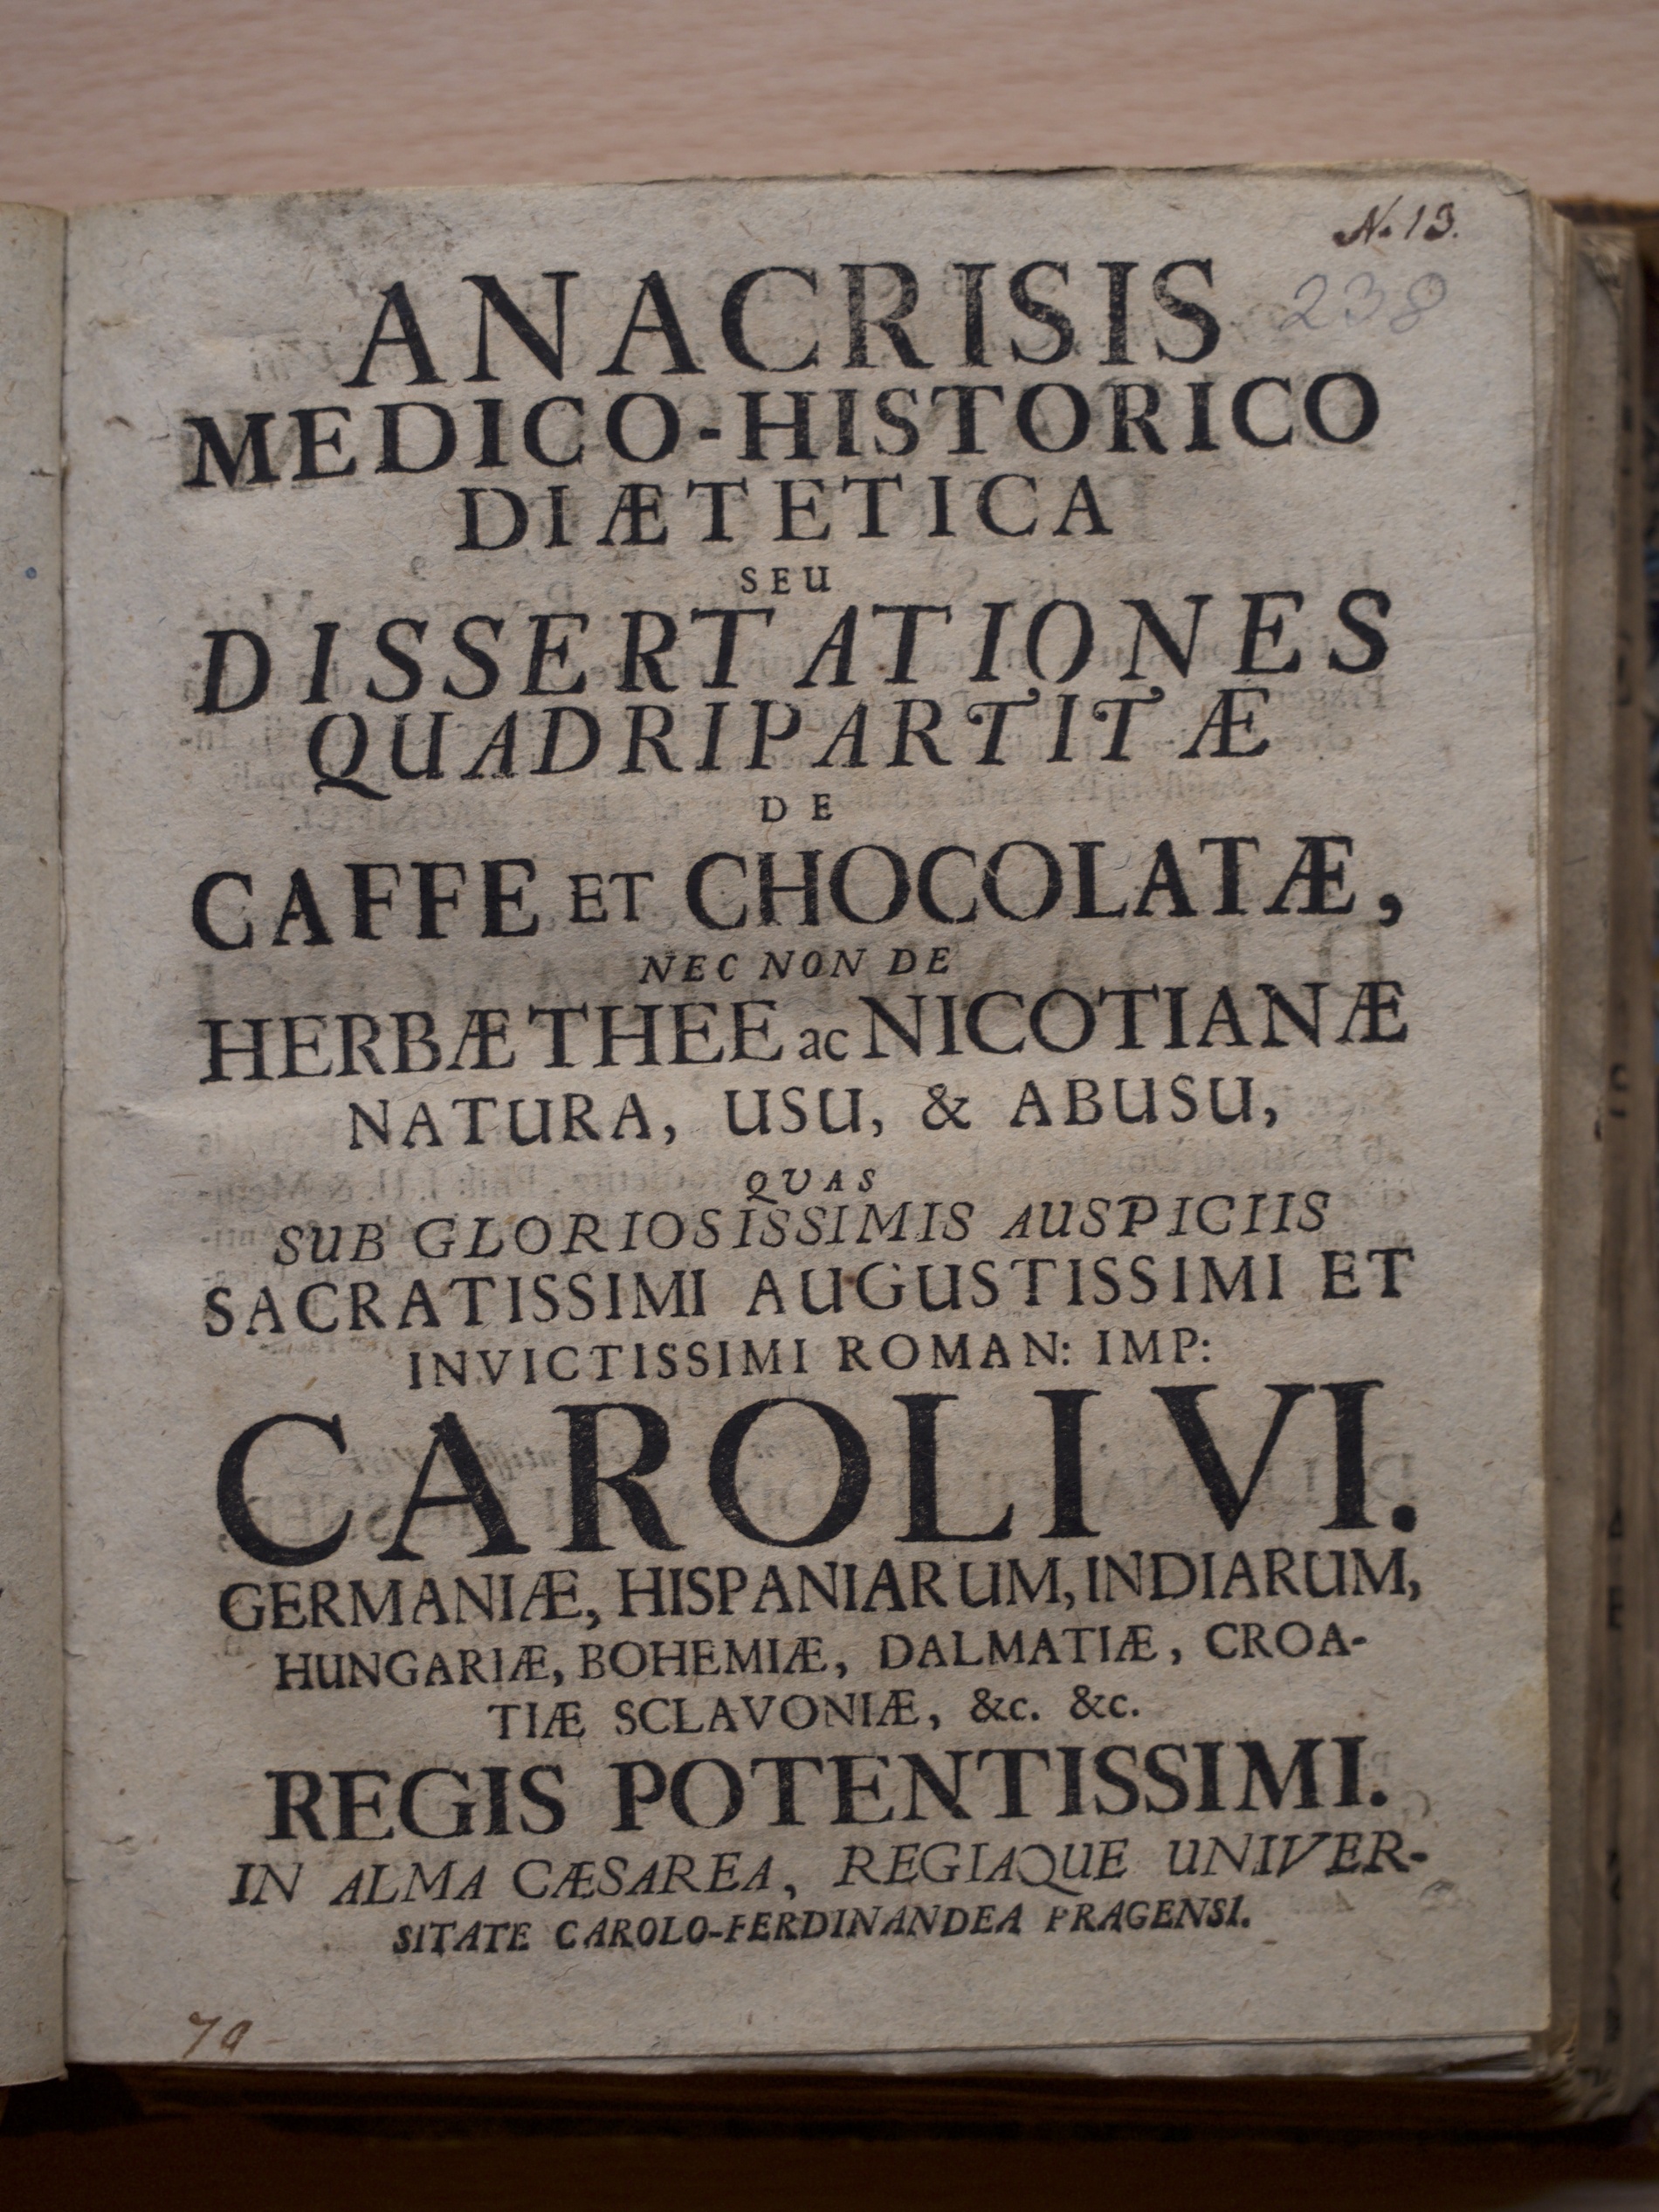 N. 13.
238
ANACRISIS
MEDICO-HISTORICO
DIÆTETICA
SEU
DISSERTATIONES
QUADRIPARTITÆ
DE
CAFFE ET CHOCOLATÆ,
NEC NON DE
HERBÆ THEE ac NICOTIANÆ
NATURA, USU, & ABUSU,
QUAS
SUB GLORIOSISSIMIS AUSPICIIS
SACRATISSIMI AUGUSTISSIMI ET
INVICTISSIMI ROMAN: IMP:
CAROLI VI.
GERMANIÆ, HISPANIARUM, INDIARUM,
HUNGARIÆ, BOHEMIÆ, DALMATIÆ, CROA-
TIÆ SCLAVONIÆ, &c. &c.
REGIS POTENTISSIMI.
IN ALMA CÆSAREA, REGIAQUE UNIVER-
SITATE CAROLO-FERDINANDEA PRAGENSI.